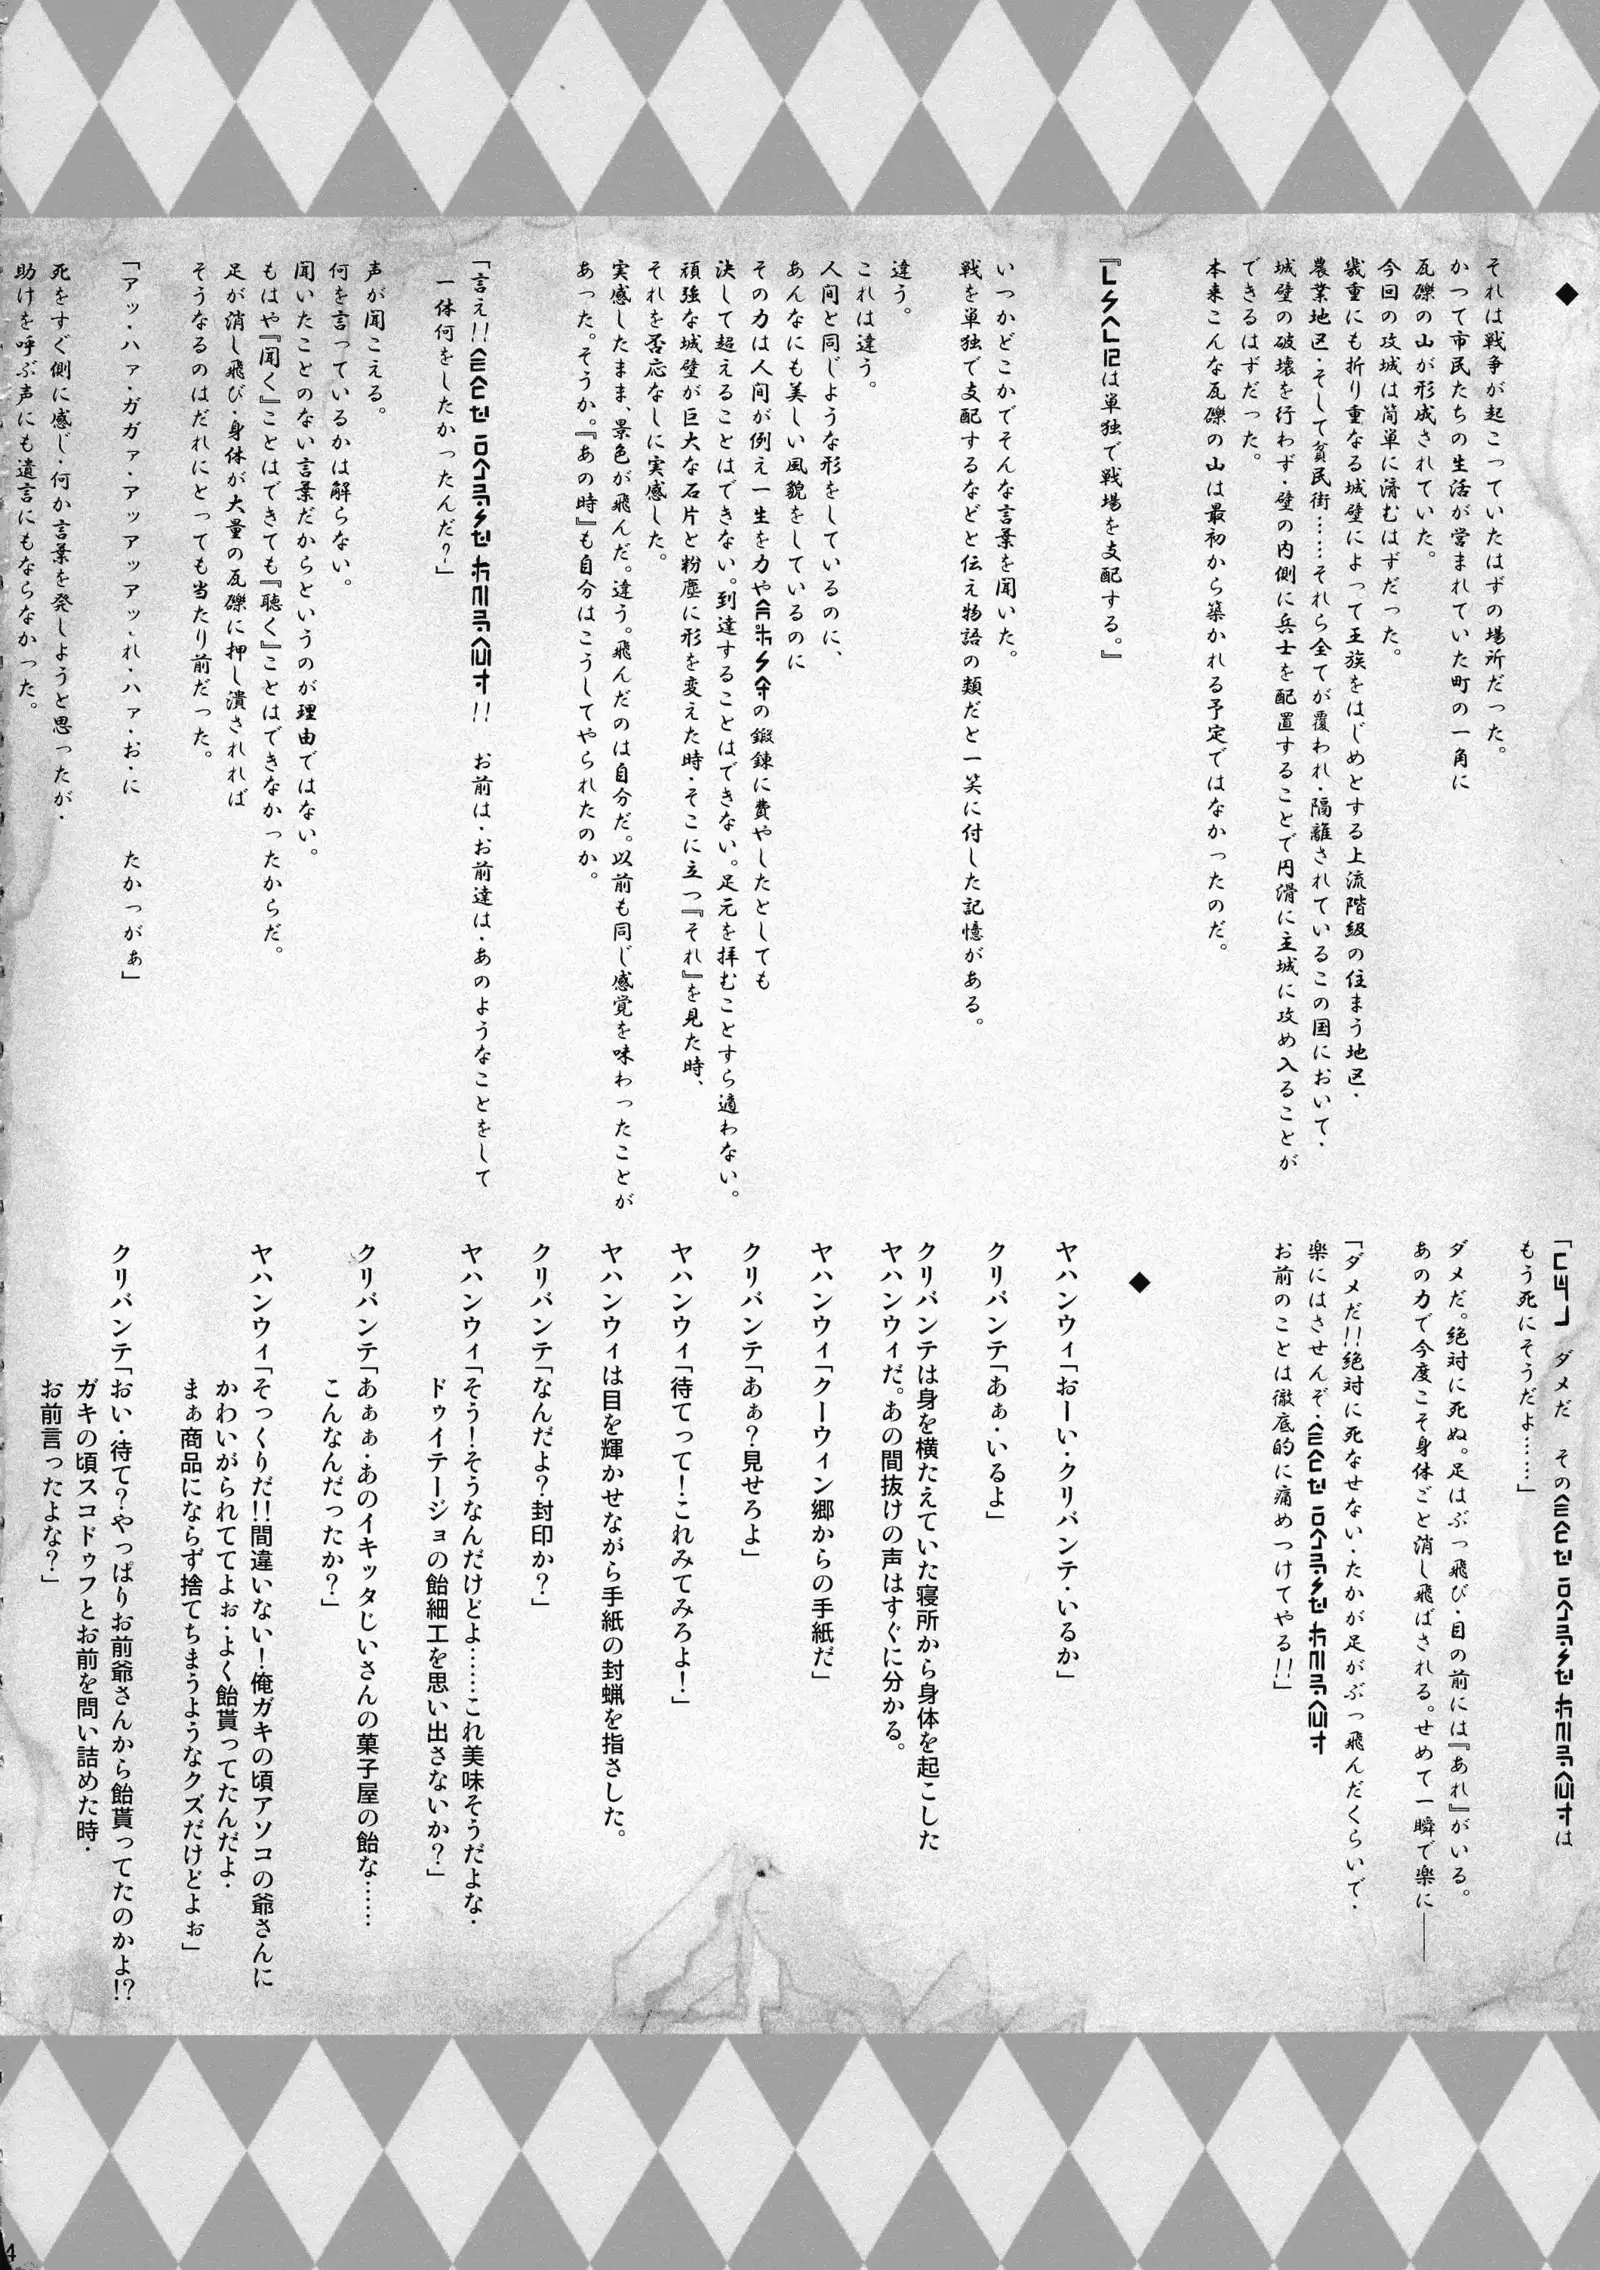 ◆
それは戦争が起こっていたはずの場所だった。
かつて市民たちの生活が営まれていた町の一角に
瓦礫の山が形成されていた。
今回の攻城は简単に済むはずだった。
幾重にも折り重なる城壁によって王族をはじめとする上流階級の住まう地区・
農業地区・そして貧民街……それら全てが覆われ・隔離されているこの国において・
城壁の破壊を行わず・壁の内側に兵士を配置することで円滑に主城に攻め入ることが
できるはずだった。
本来こんな瓦礫の山は最初から築かれる予定ではなかったのだ。
『は単独で戦場を支配する。』
いつかどこかでそんな言葉を聞いた。
戦を単独で支配するなどと伝え物語の類だと一笑に付した記憶がある。
違う。
これは違う。
人間と同じような形をしているのに、
あんなにも美しい風貌をしているのに
その力は人間が例え一生を力やの鍛錬に費やしたとしても
決して超えることはできない。到達することはできない。足元を拝むことすら適わない。
頑強な城壁が巨大な石片と粉塵に形を変えた時・そこに立つ『それ』を見た時、
それを否応なしに実感した。
実感したまま、景色が飛んだ。違う。飛んだのは自分だ。以前も同じ感覚を味わったことが
あった。そうか。『あの時』も自分はこうしてやられたのか。
「言え!!!! お前は・お前達は・あのようなことをして
一体何をしたかったんだ？」
声が聞こえる。
何を言っているかは解らない。
聞いたことのない言葉だからというのが理由ではない。
もはや『聞く』ことはできても『聴く』ことはできなかったからだ。
足が消し飛び・身体が大量の瓦礫に押し潰されれば
そうなるのはだれにとっても当たり前だった。
「アッ・ハァ・ガガァ・アッアッアッれ・ハァ・お・に たかっがぁ」
死をすぐ側に感じ・何か言葉を発しようと思ったが・
助けを呼ぶ声にも遺言にもならなかった。
「 ダメだ そのは
もう死にそうだよ……」
ダメだ。絶対に死ぬ。足はぶっ飛び・目の前には『あれ』がいる。
あの力で今度こそ身体ごと消し飛ばされる。せめて一瞬で楽に――
「ダメだ!!絶対に死なせない・たかが足がぶっ飛んだくらいで・
楽にはさせんぞ・
お前のことは徹底的に痛めつけてやる!!」
◆
ヤハンウィ「おーい・クリバンテ・いるか」
クリバンテ「あぁ・いるよ」
クリバンテは身を横たえていた寝所から身体を起こした
ヤハンウィだ。あの間抜けの声はすぐに分かる。
ヤハンウィ「クーウィン郷からの手紙だ」
クリバンテ「あぁ？見せろよ」
ヤハンウィ「待てって！これみてみろよ！」
ヤハンウィは目を輝かせながら手紙の封蝋を指さした。
クリバンテ「なんだよ？封印か？」
ヤハンウィ「そう！そうなんだけどよ……これ美味そうだよな・
ドゥイテージョの飴細工を思い出さないか？」
クリバンテ「あぁぁ・あのイキッタじいさんの菓子屋の飴な……
こんなんだったか？」
ヤハンウィ「そっくりだ!!間違いない！俺ガキの頃アソコの爺さんに
かわいがられててよぉ・よく飴貰ってたんだよ・
まぁ商品にならず捨てちまうようなクズだけどよぉ」
クリバンテ「おい・待て？やっぱりお前爺さんから飴貰ってたのかよ!?
ガキの頃スコドゥフとお前を問い詰めた時・
お前言ったよな？」
4